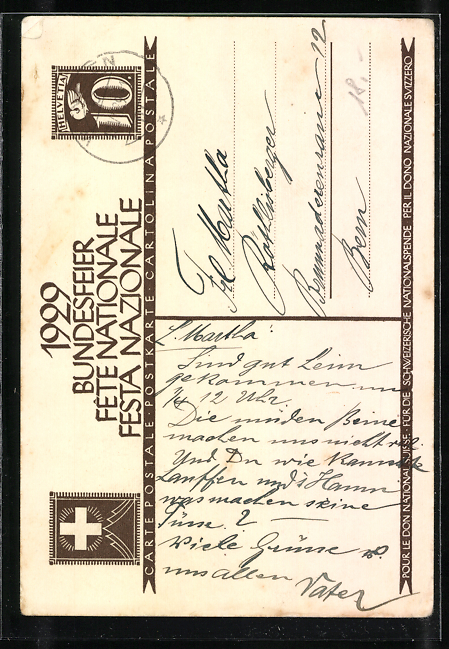 HELVETIA
10
1929
BUNDESFEIER
FÊTE NATIONALE
FESTA NAZIONALE
CARTE POSTALE · POSTKARTE · CARTOLINA POSTALE
POUR LE DON NATIONAL SUISSE · FÜR DIE SCHWEIZERISCHE NATIONALSPENDE · PER IL DONO NAZIONALE SVIZZERO
Martha
12
Bern
18.-
L. Martha!
Sind gut heim
gekommen um
12 Uhr.
Die müden Beine
machen uns nicht
Und Du wie
Lauffen
was machen seine
Füsse?
Viele Grüsse v.
uns allen
Vater